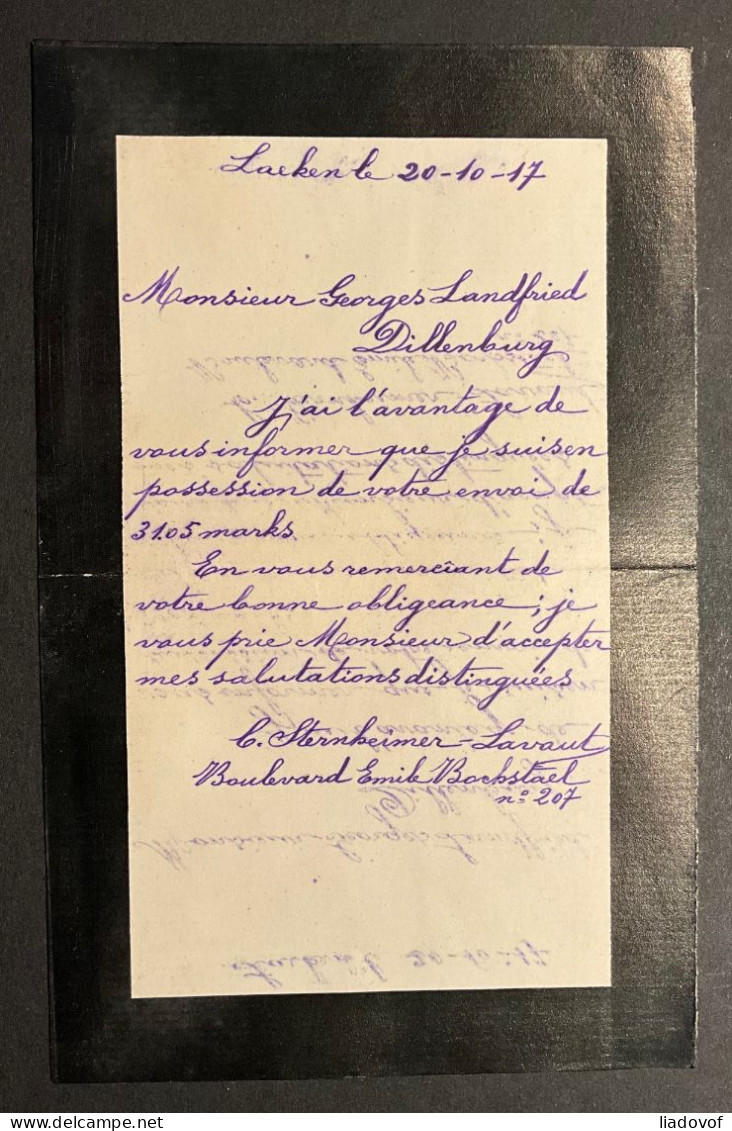 Laeken le 20-10-17
Monsieur Georges Landfried
Dillenburg
J'ai l'avantage de
vous informer que je suis en
possession de votre envoi de
31.05 marks
En vous remerciant de
votre bonne obligeance ; je
vous prie Monsieur d'accepter
mes salutations distinguées
C. Sternheimer-Lavaut
Boulevard Emile Bockstael
n° 207
liadovof